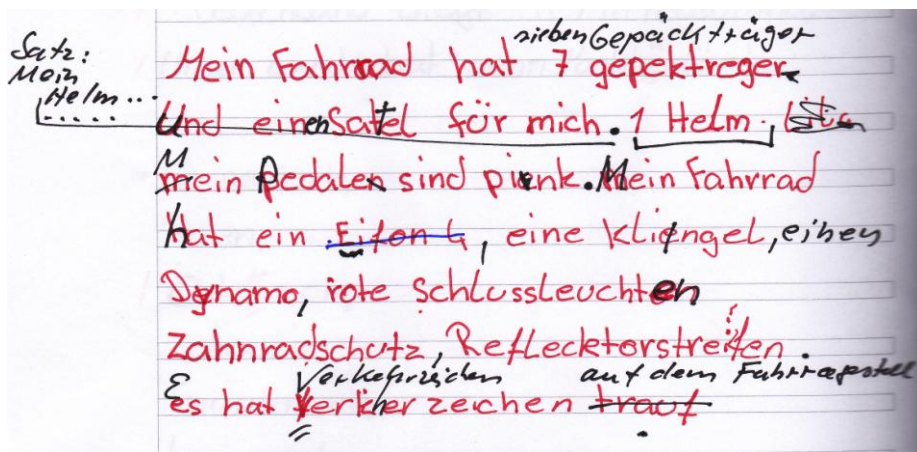 Satz:
Mein
Helm...
sieben Gepäckträger
Mein Fahrrad hat 7 gepektreger.
Und einen Sattel für mich. 1 Helm.
Mein Pedalen sind pink. Mein Fahrrad
hat ein Eifon 4, eine Kliengel, einen
Dynamo, rote Schlussleuchten
Zahnradschutz, Reflecktorstreifen.
Verkehrzeichen auf dem Fahrragestell
Es hat Verkherzeichen trauf